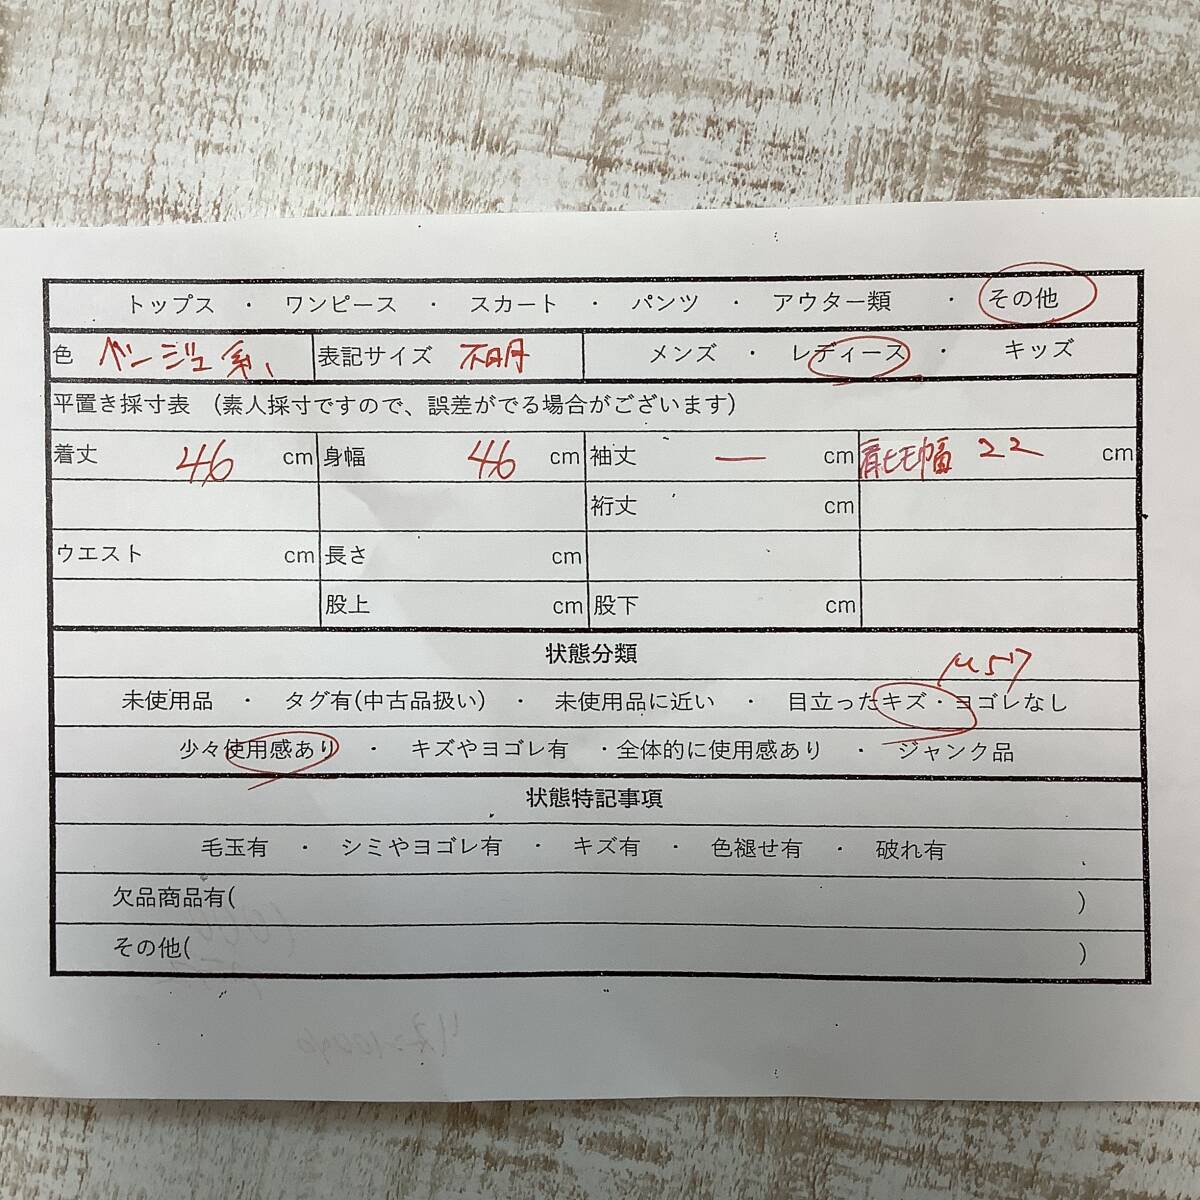 トップス ・ ワンピース ・ スカート ・ パンツ ・ アウター類 ・ その他
色 ベージュ系、 表記サイズ 不明 メンズ ・ レディース ・ キッズ
平置き採寸表 (素人採寸ですので、誤差がでる場合がございます)
着丈 46 cm 身幅 46 cm 袖丈 ー cm 肩ヒモ幅 22 cm
裄丈 cm
ウエスト cm 長さ cm
股上 cm 股下 cm
状態分類
未使用品 ・ タグ有(中古品扱い) ・ 未使用品に近い ・ 目立ったキズ・ヨゴレなし
少々使用感あり ・ キズやヨゴレ有 ・全体的に使用感あり ・ ジャンク品
状態特記事項
毛玉有 ・ シミやヨゴレ有 ・ キズ有 ・ 色褪せ有 ・ 破れ有
欠品商品有( )
その他( )